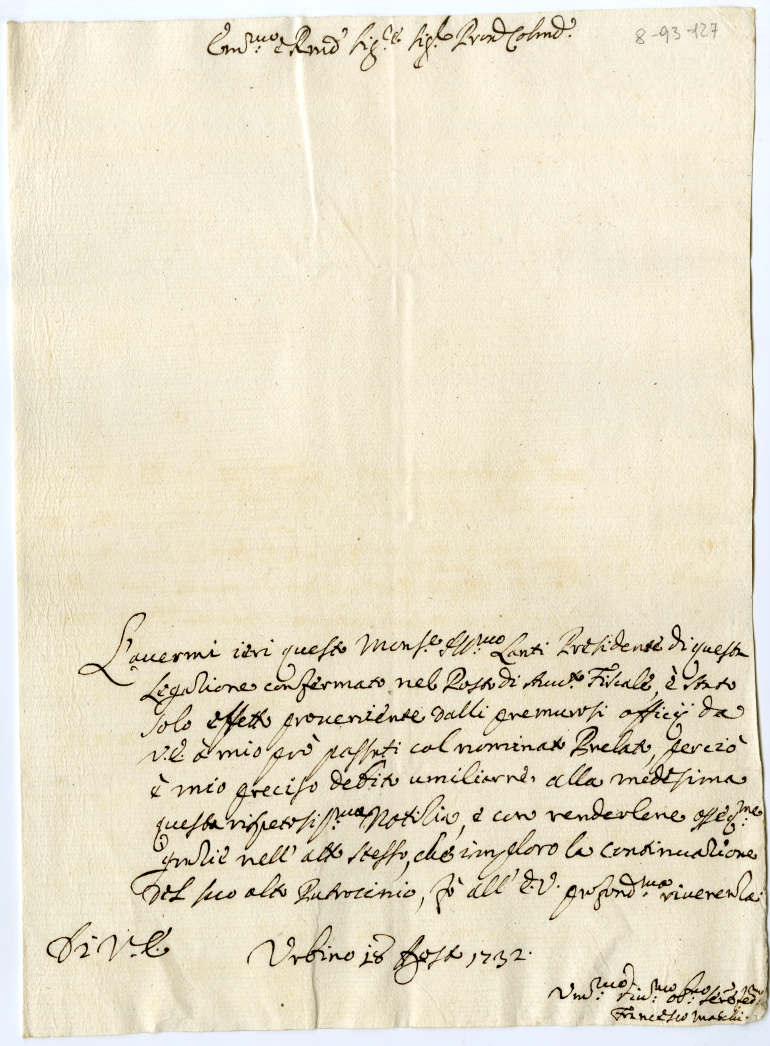 Em.mo e Rmd Sig.re Sig.re Pron Colmd.
8-93-127
L'avermi ieri questo Mons.re Ill.mo Lanti Presidente di questa
Legazione confermato nel Posto di Audt.e Fiscale, è stato
solo effetto proveniente dalli premurosi officij da
V.E. à mio prò passati col nominato Prelato, perciò
è mio preciso debito umiliarne alla medesima
questa rispetosiss.ma Notizia, e con renderlene osseq.me
grazie nell'atto stesso, che imploro la continuazione
del suo alto Patrocinio, fò all'E.V. profond.ma riverenza
Di V.E.
Urbino 18 Agosto 1732.
Um.mo Div.mo ob.mo Serv
Francesco Maschi.